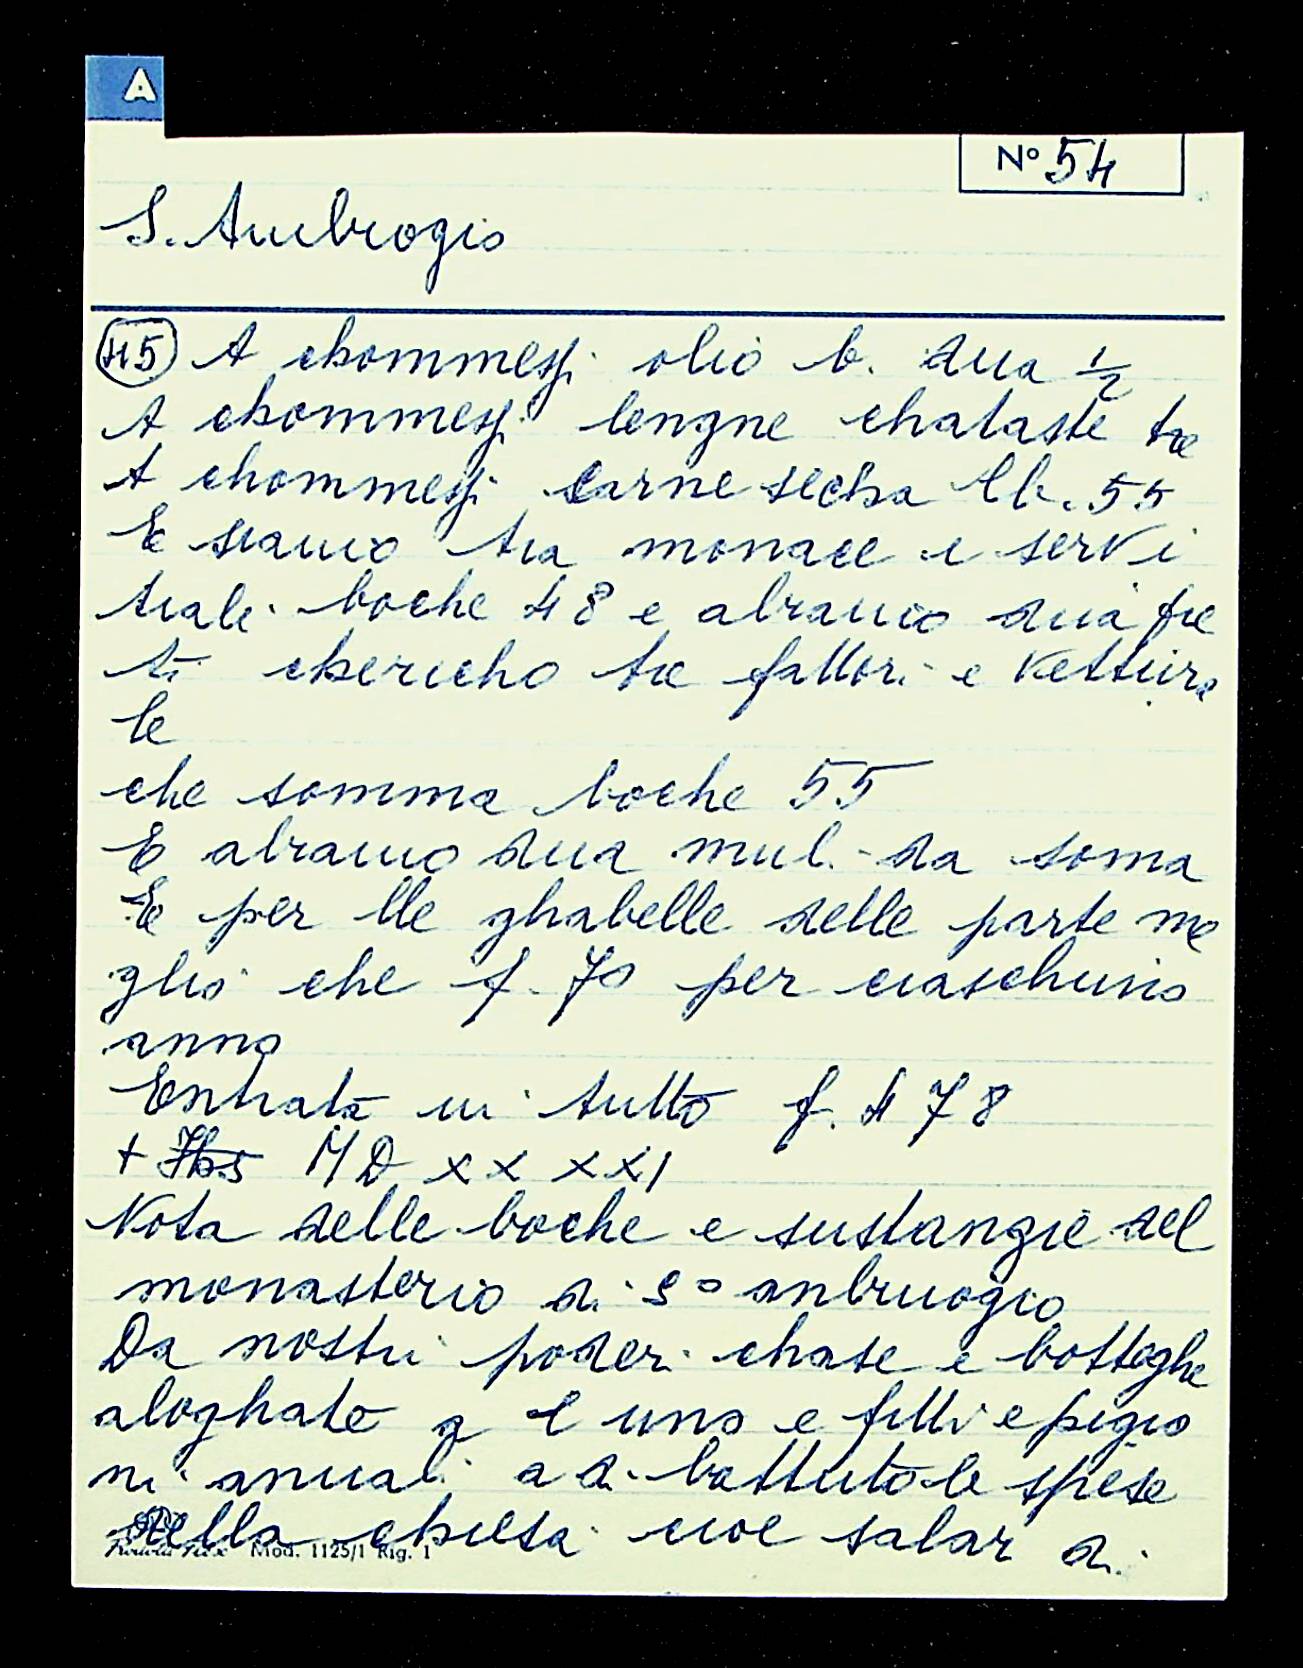 A
N° 54
S. Ambrogio
45 A chommessi olio b. dua ½
A chommessi lengne chataste tre
A chommessi carne secha lb. 55
E siamo tra monace e servi
tiali boche 48 e abiamo dua fra
ti chericho tre fattori e vettura
le
che somma boche 55
E abiamo dua muli da soma
E per lle ghabelle delle parte me
glio che f. 70 per ciaschuno
anno
Entrata in tutto f. 478
+ Ihs MD XX XXI
Nota delle boche e sustangie del
monasterio di S° anbruogio
Da nostri poderi chase e botteghe
aloghate a l uno e fitti e pigio
ni anuali a di battuto le spese
della chiesa cioe salar di
Mod. 1125/1 Rig. 1